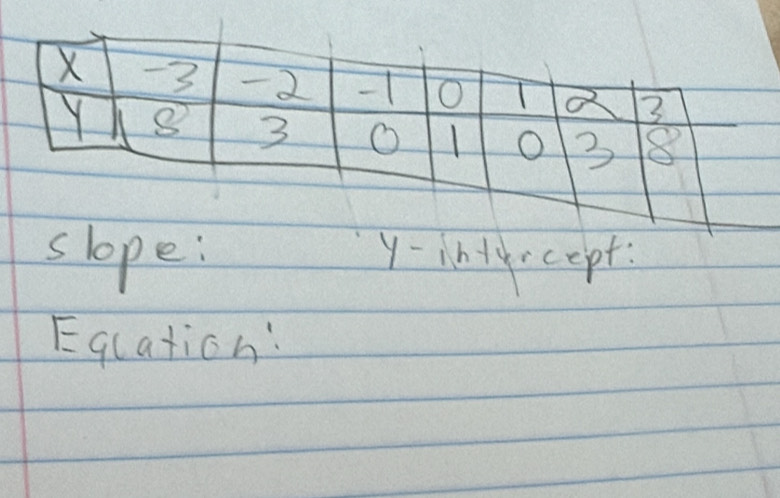 X -3 -2 -1 0 1 2 3
Y 8 3 0 1 0 3 8
slope: y-intercept:
Equation: